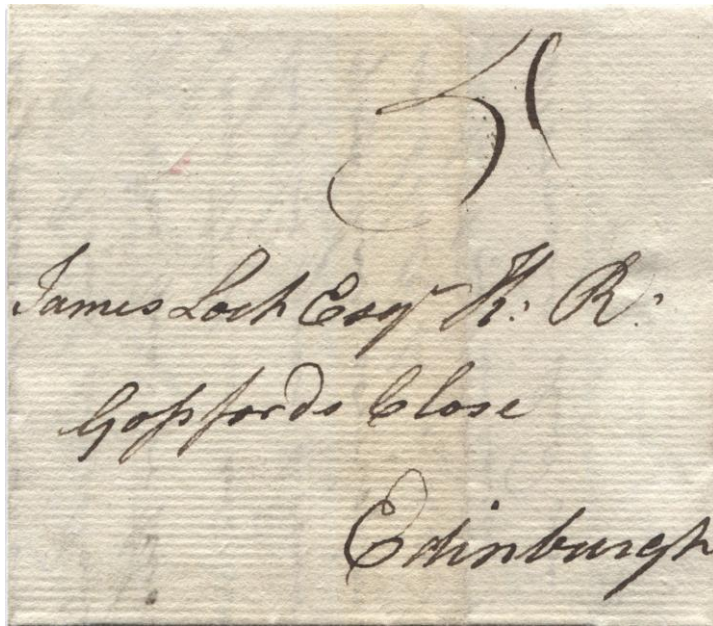 5
James Loch Esqr K: R:
Gosfords Close
Edinburgh